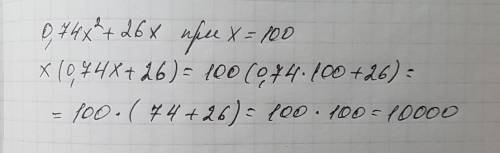 0,74x² + 26x при x = 100
x(0,74x + 26) = 100(0,74·100 + 26) =
= 100·(74 + 26) = 100·100 = 10000